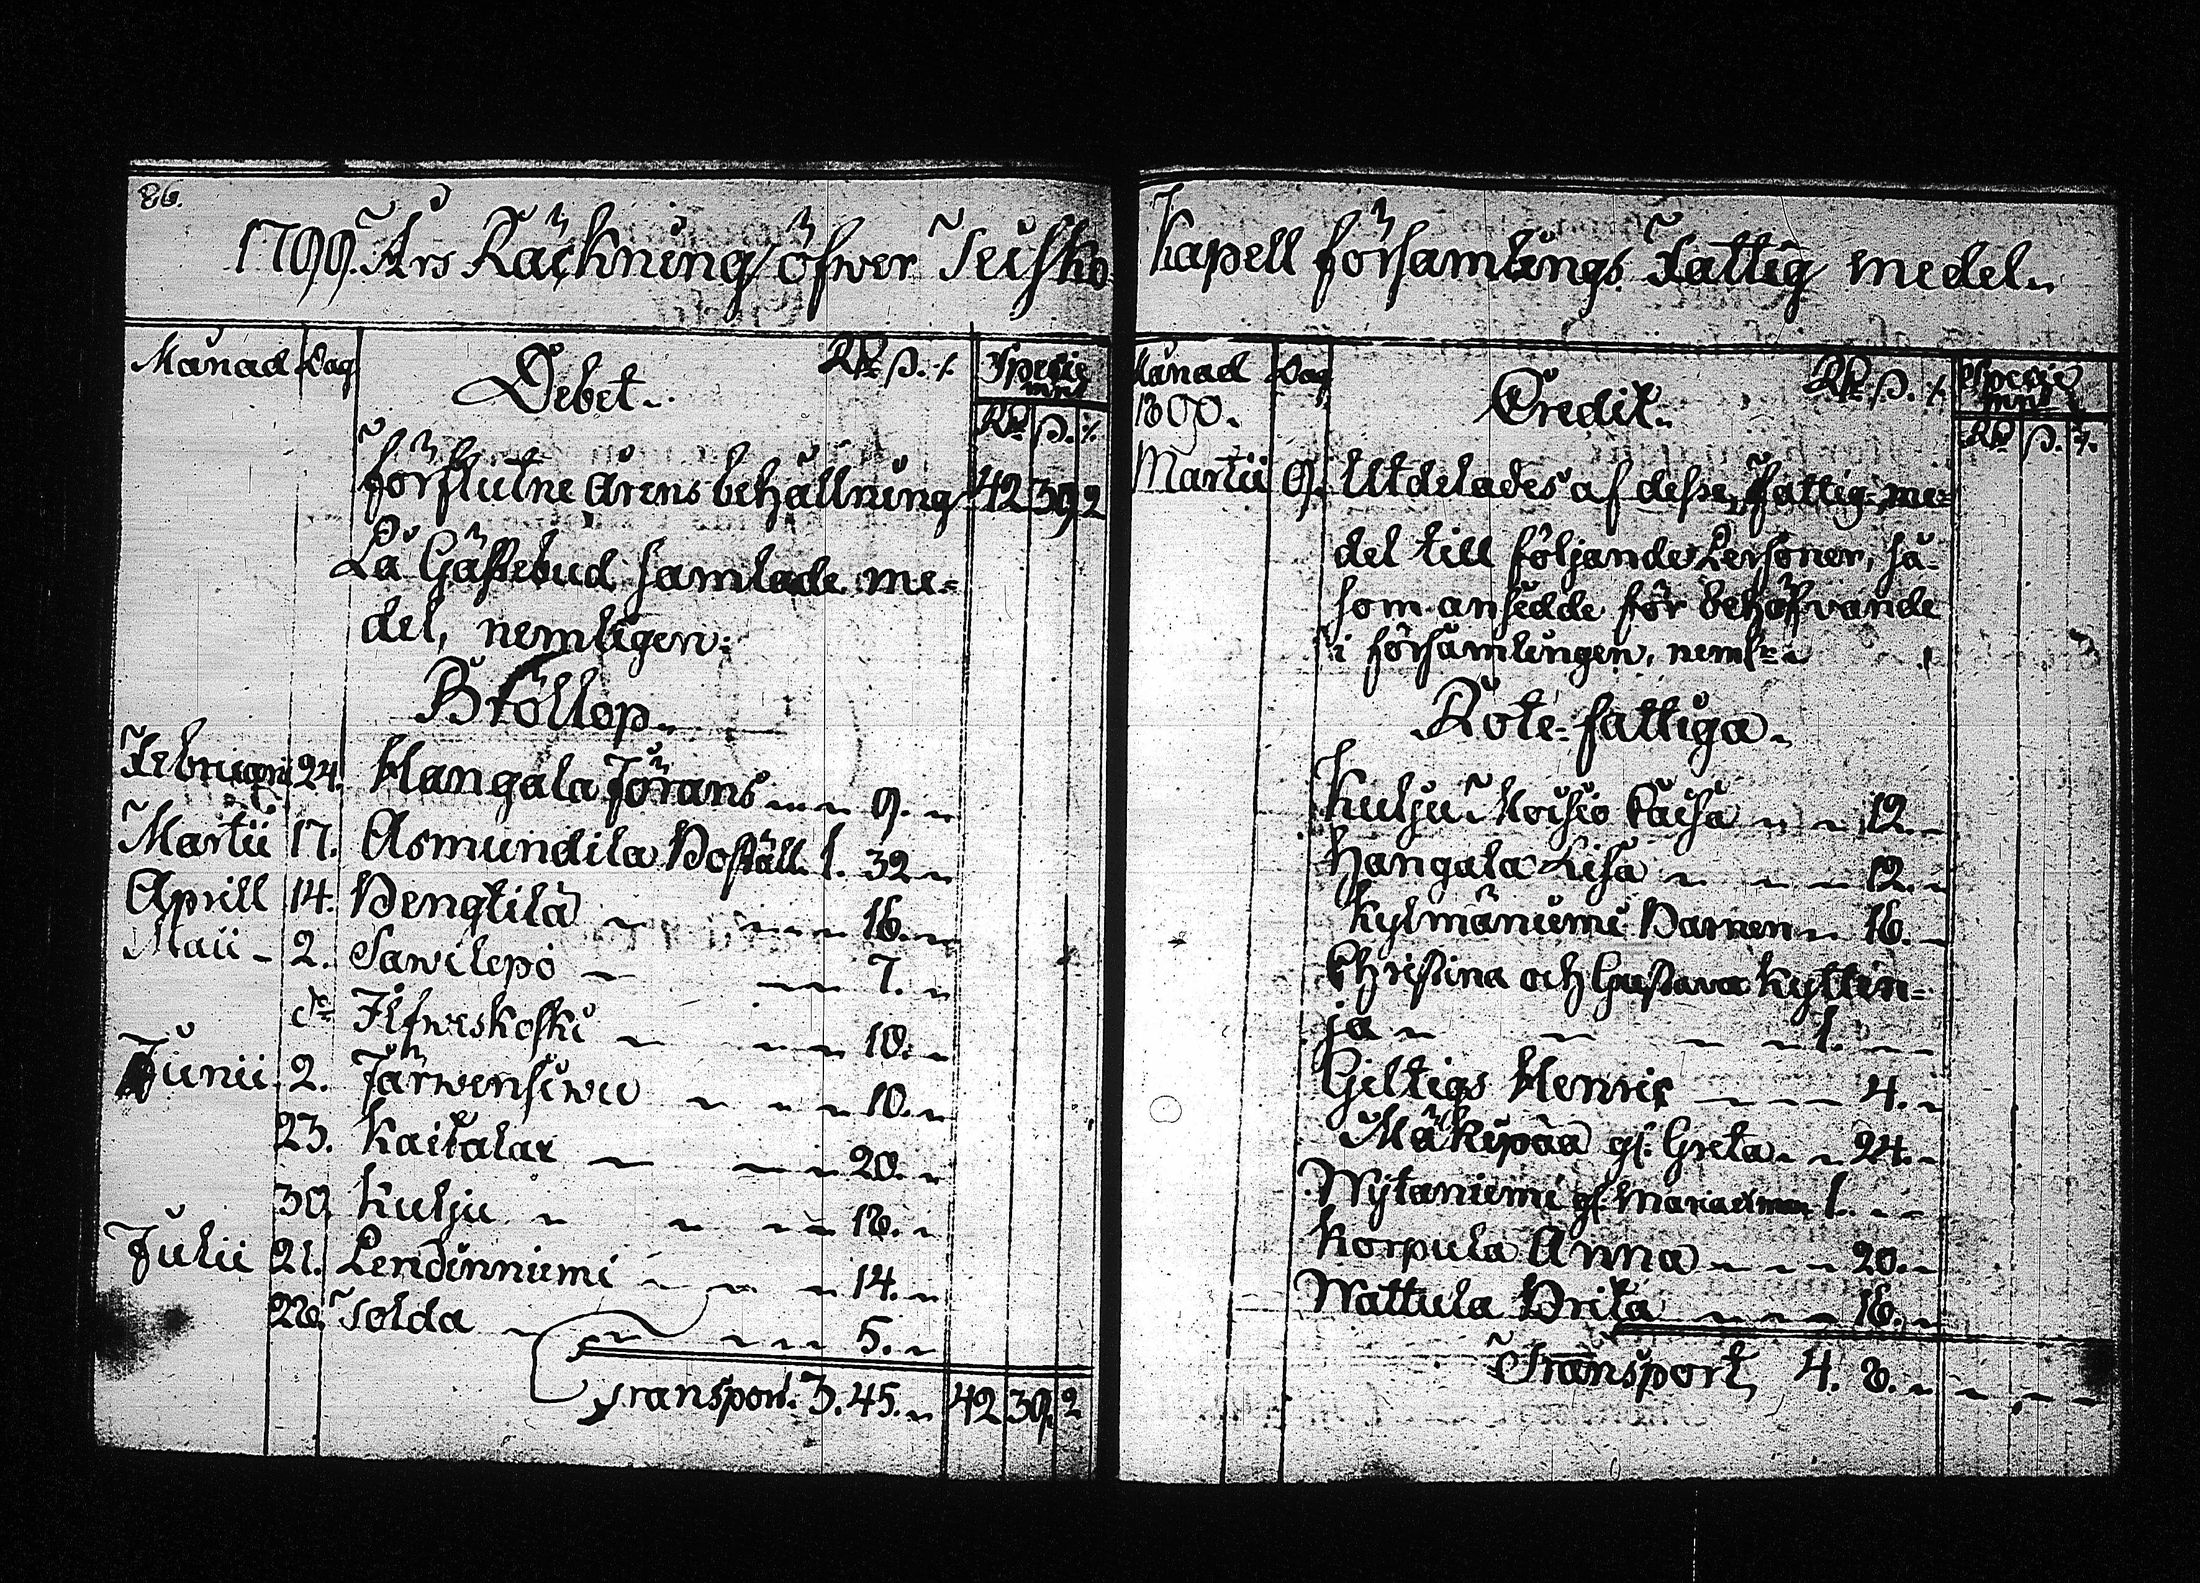 86.
1799. Års Räckning öfwer Teisko
Månad Dag Debet. Rd. ß. r. Specie mnt
Rd. ß. r.
förflutne årens behållning 42 39 2
På Gästebud samlade me=
del, nemligen:
Bröllop.
Februari 24. Hangala Jörans 9.
Martii 17. Asmundila Boställ. 1. 32
Aprill 14. Bengtila 16.
Maii 2. Sawilepo 7.
do Ilfweskoski 10.
Junii 2. Järwensiwu 10.
23. Kaitalax 20.
30. Kulju 18.
Julii 21. Lendinniemi 14.
28. Tolda 5.
Transport. 3. 45. 42 39. 2
Kapell församlings Fattig medel.
Månad Dag Credit. Rd. ß. r. Specie mnt
1800. Rd. ß. r.
Martii 9. Utdelades af desse Fattig-me=
del till följande Personer, så-
som ansedde för behöfvande
i församlingen, neml:n
Rote-fattiga.
Kulju Moisio Caisa 12.
Hangala Lisa 12.
Kylmäniemi Barnen 16.
Christina och Gustava Kyttin=
ja 1.
Giltigs Henric 4.
Mäkipää gl. Greta 24.
Wytaniemi gl. 1.
Korpula Anna 20.
Wattula Brita 16.
Transport 4. 8.